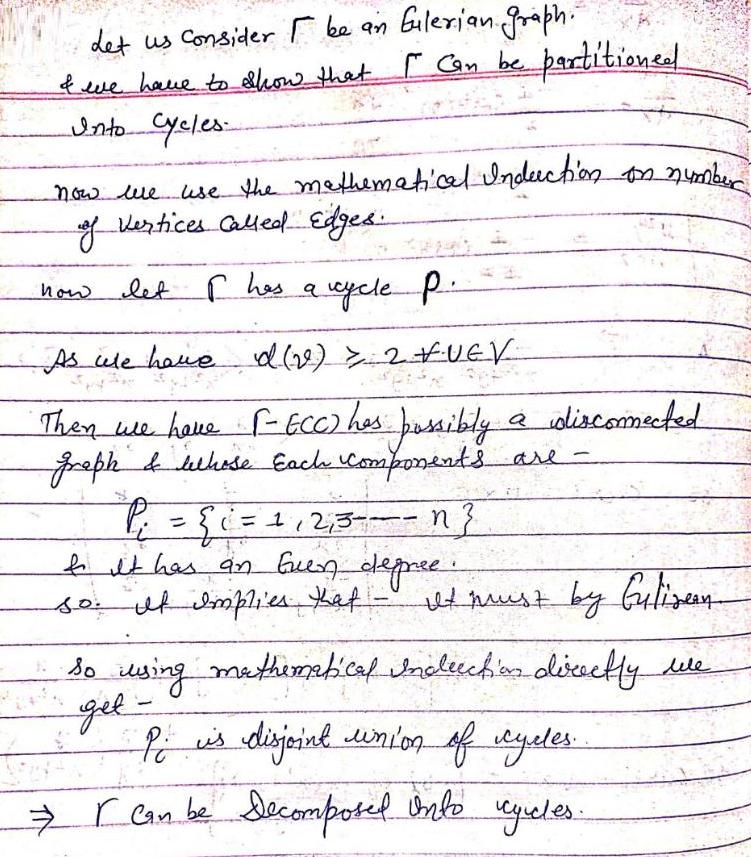 Let us Consider Γ be an Eulerian graph.
& we have to show that Γ can be partitioned
Into cycles.
now we use the mathematical Induction on number
of Vertices Called Edges.
now let Γ has a cycle P.
As we have d(v) ≥ 2 ∀ U ∈ V
Then we have Γ-E(C) has possibly a disconnected
graph & whose Each components are -
Pi = { i = 1, 2, 3 ---- n }
& It has an Even degree.
so. it implies that - it must by Eulirean
So using mathematical Induction directly we
get -
Pi is disjoint union of cycles.
⇒ Γ can be Decomposed Into cycles.